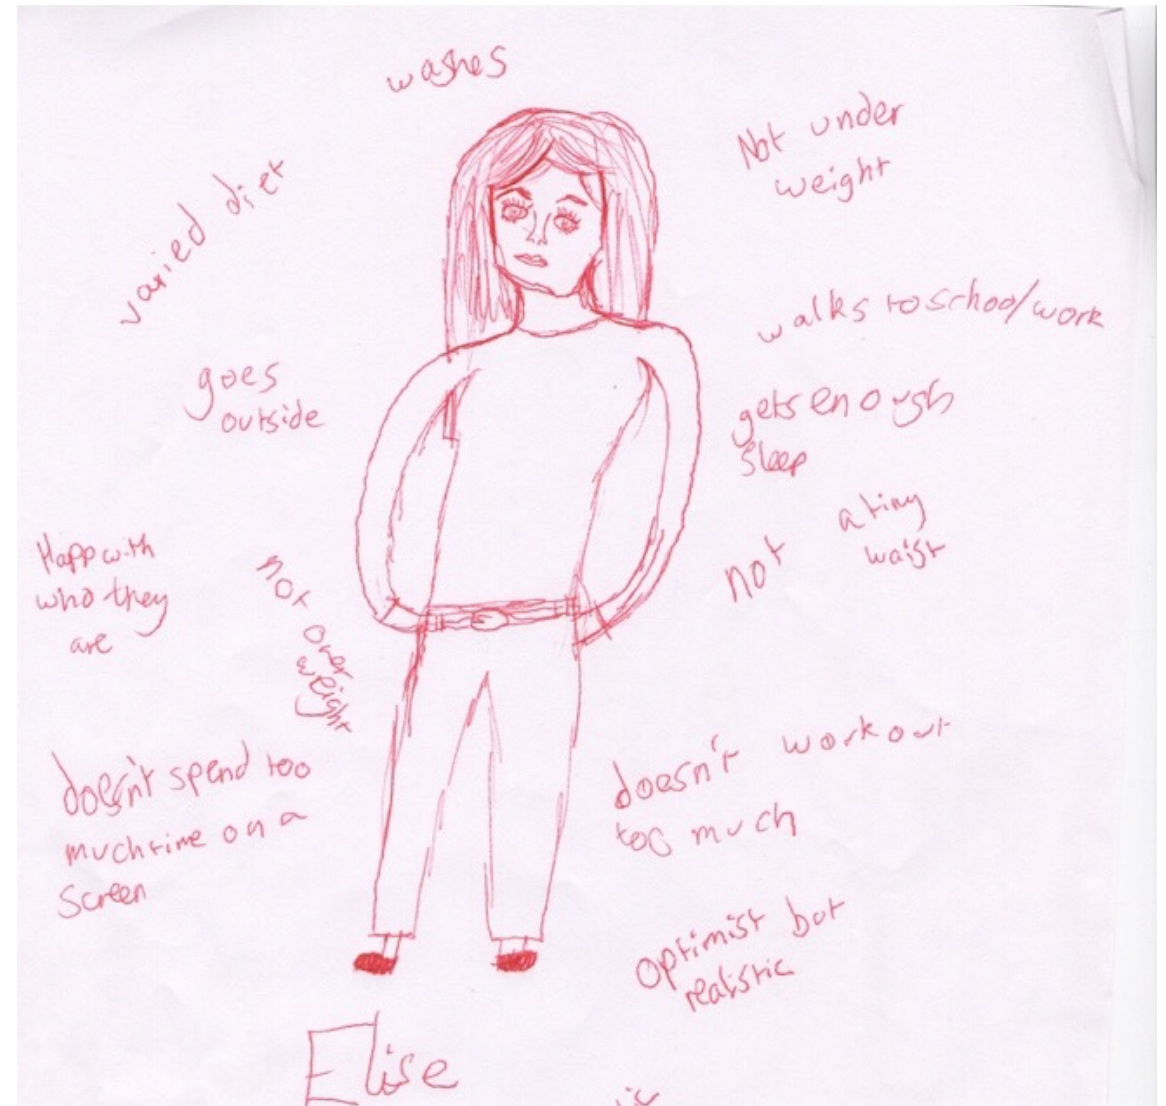 washes
Not under
weight
varied diet
walks to school/work
goes
outside
gets enough
sleep
not a tiny
waist
Happ with
who they
are
not over
weight
doesn't spend too
much time on a
screen
doesn't work out
too much
optimist but
realistic
Elise